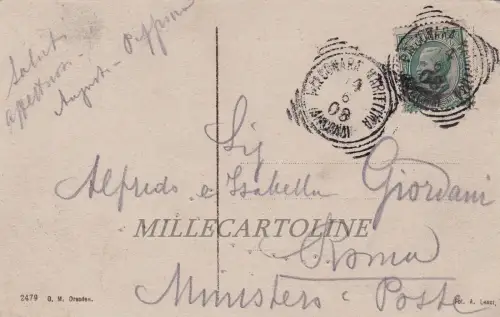 Saluti
affettuosi
Augusto
FALCONARA MARITTIMA
4
6
08
(ANCONA)
Sig
Alfredo e Isabella Giordani
MILLECARTOLINE
Roma
Ministero Poste
2479 G. M. Dresden.
A.